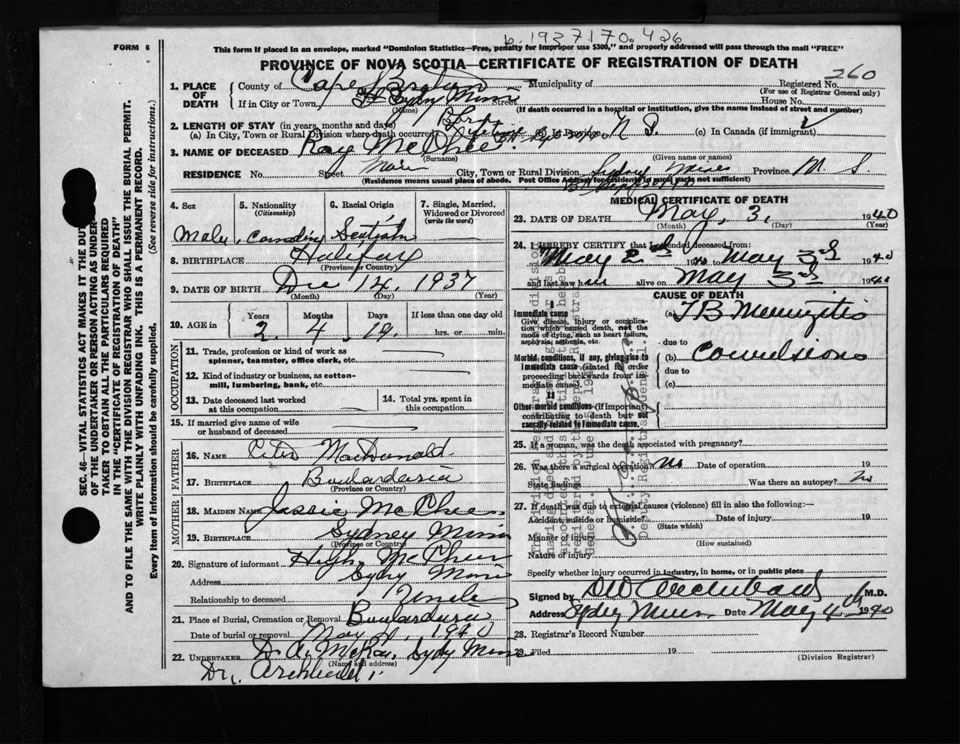 b. 1937.170.426
FORM 6
This form if placed in an envelope, marked "Dominion Statistics—Free, penalty for improper use $300," and properly addressed will pass through the mail "FREE"
PROVINCE OF NOVA SCOTIA—CERTIFICATE OF REGISTRATION OF DEATH
260
1. PLACE OF DEATH
County of Cape Breton
Municipality of
Registered No.
(For use of Registrar General only)
If in City or Town, Sydny Mines
(Name)
Street
House No.
(If death occurred in a hospital or institution, give the name instead of street and number)
2. LENGTH OF STAY (in years, months and days)
(a) In City, Town or Rural Division where death occurred
N S.
(c) In Canada (if immigrant)
3. NAME OF DECEASED Ray McPhee
(Surname)
(Given name or names)
RESIDENCE No. Street Main City, Town or Rural Division Sydny Mines Province N. S.
(Residence means usual place of abode. Post Office Address for residents is not sufficient)
4. Sex
5. Nationality
(Citizenship)
6. Racial Origin
7. Single, Married, Widowed or Divorced
(write the word)
Male,
8. BIRTHPLACE Halifax
(Province or Country)
9. DATE OF BIRTH Dec 14, 1937
(Month) (Day) (Year)
10. AGE in
Years Months Days If less than one day old
2. 4 19. hrs. or min.
OCCUPATION
11. Trade, profession or kind of work as spinner, teamster, office clerk, etc.
12. Kind of industry or business, as cotton-mill, lumbering, bank, etc.
13. Date deceased last worked at this occupation
14. Total yrs. spent in this occupation
15. If married give name of wife or husband of deceased
FATHER
16. NAME Peter MacDonald
17. BIRTHPLACE Boulardarie
(Province or Country)
MOTHER
18. MAIDEN NAME Jessie McPhee
19. BIRTHPLACE Sydney Mines
(Province or Country)
20. Signature of informant Hugh McPhee
Address Sydny Mines
Relationship to deceased Uncle
21. Place of Burial, Cremation or Removal Boulardarie
Date of burial or removal May 1940
22. UNDERTAKER D. A. McRae, Sydy Mines
(Name and address)
Dr. Archibald.
MEDICAL CERTIFICATE OF DEATH
23. DATE OF DEATH May, 3, 1940
(Month) (Day) (Year)
24. I HEREBY CERTIFY that I attended deceased from:
May 2nd to May 3rd 1940
and last saw him alive on May 3rd 1940
CAUSE OF DEATH
I
Immediate cause
Give disease, injury or complication which caused death, not the mode of dying, such as heart failure, asphyxia, asthenia, etc.
(a) TB Meningitis
due to
Morbid conditions, if any, giving rise to immediate cause (stated in order proceeding backwards from immediate cause).
(b) Convulsions
due to
(c)
II
Other morbid conditions (if important) contributing to death but not causally related to immediate cause.
25. If a woman, was the death associated with pregnancy?
26. Was there a surgical operation? No Date of operation 19
State findings Was there an autopsy? No
27. If death was due to external causes (violence) fill in also the following:—
Accident, suicide or homicide? Date of injury 19
(State which)
Manner of injury
(How sustained)
Nature of injury
Specify whether injury occurred in industry, in home, or in public place
Signed by DW Archibald M.D.
Address Sydny Mines Date May 4th 1940
28. Registrar's Record Number
29. Filed 19
(Division Registrar)
SEC. 46—VITAL STATISTICS ACT MAKES IT THE DUTY OF THE UNDERTAKER OR PERSON ACTING AS UNDERTAKER TO OBTAIN ALL THE PARTICULARS REQUIRED IN THE "CERTIFICATE OF REGISTRATION OF DEATH" AND TO FILE THE SAME WITH THE DIVISION REGISTRAR WHO SHALL ISSUE THE BURIAL PERMIT.
WRITE PLAINLY WITH UNFADING INK. THIS IS A PERMANENT RECORD.
Every item of information should be carefully supplied. (See reverse side for instructions.)
Deputy Registrar General.